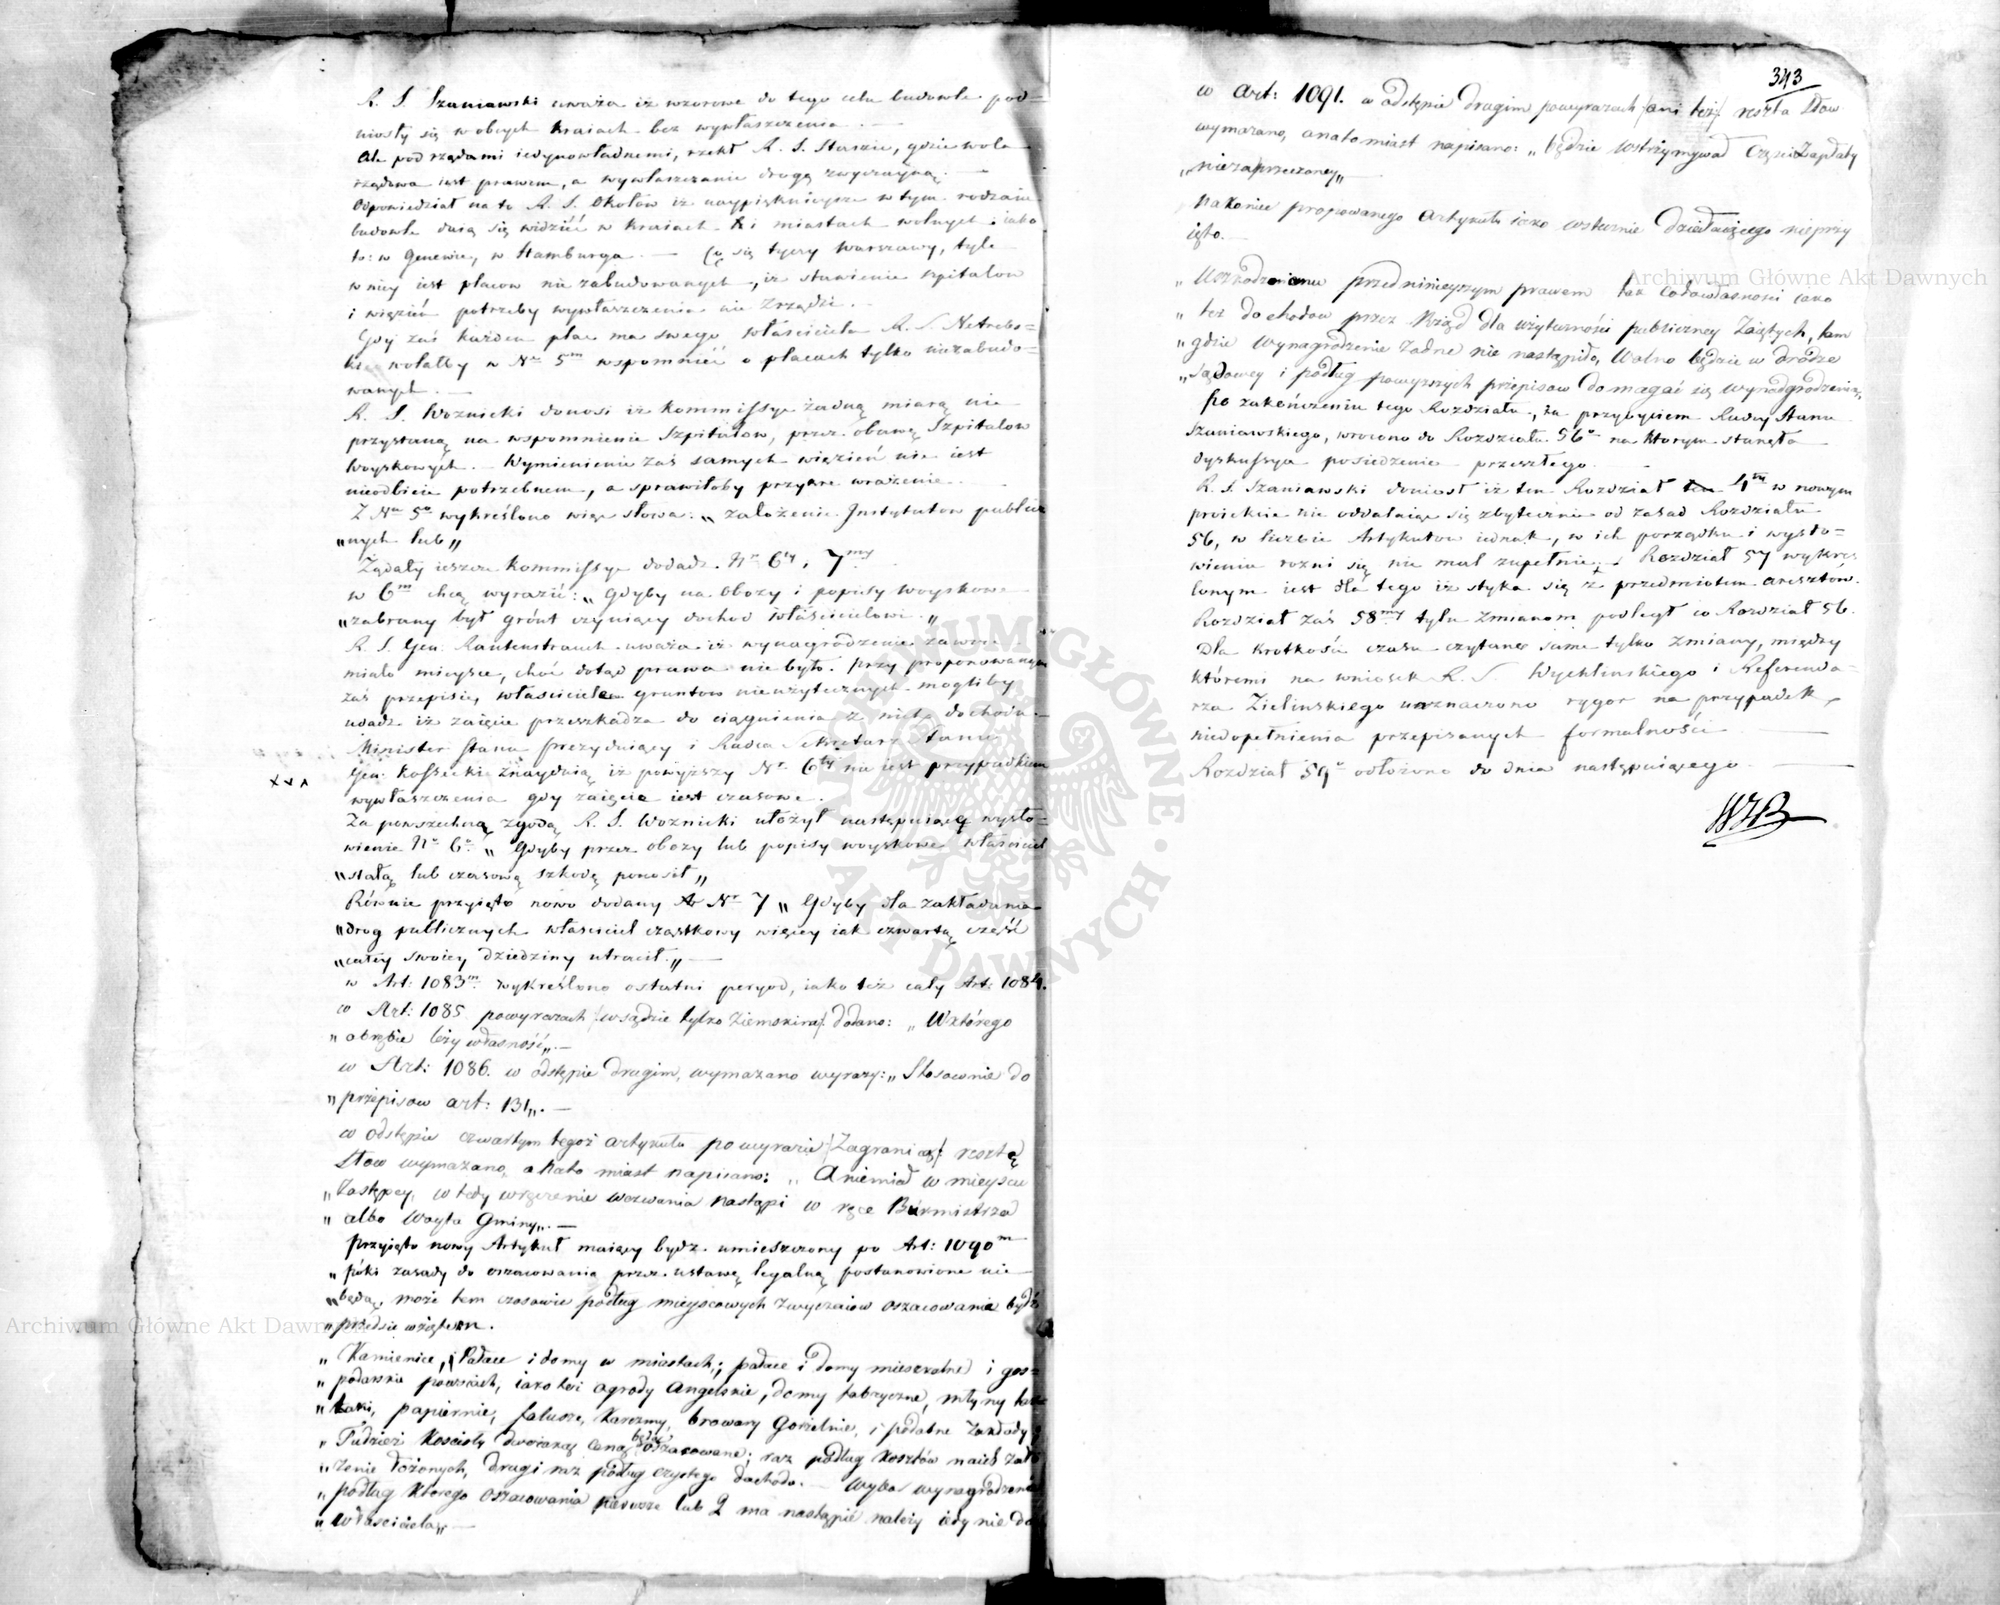 R. S. Szaniawski uważa iż wzorowe do tego celu budowle pod=
niosły się w obcych kraiach bez wywłaszczenia. —
Ale pod rządami iedynowładnemi, rzekł R. S. Staszic, gdzie wola
rządowa iest prawem, a wywłaszczanie drogą zwyczayną. —
Odpowiedział na to R. S. Okołow iż naypięknieysze w tym rodzaiu
budowle daią się widzieć w kraiach i miastach wolnych, iako
to: w Genewie, w Hamburgu. — Co się tyczy Warszawy, tyle
w niey iest placow nie zabudowanych, iż stawienie szpitalow
i więzień potrzeby wywłaszczenia nie zrządzi. —
Gdy zaś każden plac ma swego właściciela R. S. Netrebs=
ki wolałby w Nrze 5m wspomnieć o placach tylko niezabudo=
wanych. —
R. S. Woznicki donosi iż Kommissye żadną miarą nie
przystaną na wspomnienie Szpitalow, przez obawę Szpitalow
Woyskowych. — Wymienienie zaś samych więzień nie iest
nieodbicie potrzebnem, a sprawiłoby przykre wrażenie.
Z Nru 5o wykreślono więc słowa: „założenie Instytutow public
„nych lub„
Żądały ieszcze Kommissye dodać Nr 6ty, 7my
w 6m chcą wyrazić: „Gdyby na obozy i popisy woyskowe
„zabrany był grónt czyniący dochod właścicielowi.„
R. S. Gen: Rautenstrauch uważa iż wynagrodzenie zawsze
miało mieysce, choć dotąd prawa nie było. Przy proponowanym
zaś przepisie, właściciele gruntow nieużytecznych mogliby
udać iż zaięcie przeszkadza do ciągnienia z nich dochodu.
Minister Stanu Prezyduiący i Radca Sekretarz Stanu
Gen: Kossecki znayduią iż powyższy Nr 6ty nie iest przypadkiem
wywłaszczenia gdy zaięcie iest czasowe.
Za powszechną zgodą R. S. Woznicki ułożył następuiące wysło=
wienie Nru 6o „Gdyby przez obozy lub popisy woyskowe właściciel
„stałą lub czasową szkodę ponosił„
Rownie przyięto nowo dodany Nr 7 „Gdyby dla zakładania
„drog publicznych właściciel cząstkowy więcey iak czwartą część
„całey swoiey dziedziny utracił.„ —
w Art: 1083m wykreślono ostatni peryod, iako też cały Art: 1084.
w Art: 1085 po wyrazach /w sądzie tylko Ziemskim/ dodano: „Wktórego
„obrębie leży własność„. —
w Art: 1086. w odstępie drugim, wymazano wyrazy: „Stosownie do
„przepisow art: 131„. —
w odstępie czwartym tegoż artykułu po wyrazie /Zagranicą/ resztę
Słow wymazano, a natomiast napisano: „A niemiał w mieyscu
„Zastępcy, w tedy wręczenie wezwania nastąpi w ręce Burmistrza
„albo Woyta Gminy„. —
Przyięto nowy Artykuł maiący bydź umieszczony po Art: 1090m
„Póki zasady do oszacowania przez ustawę legalną postanowione nie
„będą, może tem czasowie podług mieyscowych zwyczaiow oszacowanie bydź
„przedsiewziętem.
„Kamienice, Pałace i domy w miastach; pałace i domy mieszkalne i gos=
„podarskie po wsiach, iako też ogrody Angelskie, domy fabryczne, młyny tar
„taki, papiernie, folusze, Karczmy, browary Gorzelnie, i podobne Zakłady
„Tudzież Kościoły dwoiaką ceną będą oszacowane; raz podług kosztów na ich zało
„żenie łożonych, drugi raz podług czystego dochodu. — Wybor wynagrodzenia
„podług ktorego oszacowania pierwsze lub 2 ma nastąpić należy iedynie do
„właściciela„ —
343
w Art: 1091. w odstępie drugim po wyrazach /ani też/ reszta Słow
wymazano, a natomiast napisano: „będzie wstrzymywał części Zapłaty
„niezaprzeczoney„ —
Nakoniec proponowanego Artykułu iako wstecznie Działaiącego nieprzy
ięto. —
„Uszkodzonemu przed ninieyszym prawem tak co do własności iako
„też dochodow przez Rząd dla użyteczności publiczney Zaiętych, tam
„gdzie wynagrodzenie żadne nie nastąpiło, Wolno będzie w drodze
„sądowey i podług powyższych przepisow domagać się wynadgrodzenia„
Po zakończeniu tego Rozdziału, za przybyciem Radcy Stanu
Szaniawskiego, wrocono do Rozdziału 56o na ktorym stanęła
dyskussya posiedzenia przeszłego.
R. S. Szaniawski doniosł iż ten Rozdział 4m w nowym
proiekcie nie oddalaiąc się zbytecznie od zasad Rozdziału
56, w liczbie Artykułow iednak, w ich porządku i wysło=
wieniu rożni się nie mal zupełnie. Rozdział 57 wykreś
lonym iest dla tego iż styka się z przedmiotem aresztów.
Rozdział zaś 58my tylu zmianom podległ co Rozdział 56.
Dla krotkości czasu czytano same tylko zmiany, między
któremi na wniosek R. S. Wyczechowskiego i Referenda=
rza Zielinskiego uznaczono rygor na przypadek
niedopełnienia przepisanych formalności —
Rozdział 59o odłożono do dnia następuiącego. —
Archiwum Główne Akt Dawnych
Archiwum Główne Akt Dawnych
ARCHIWUM GŁÓWNE AKT DAWNYCH